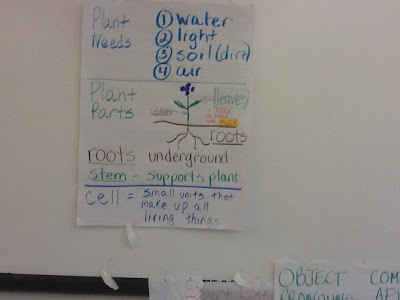 Plant Needs
① water
② light
③ soil (dirt)
④ air
Plant Parts
leaves
stem
roots
roots underground
stem - supports plant
cell = small units that
make up all
living things
OBJECT
PRONOUNS
COM